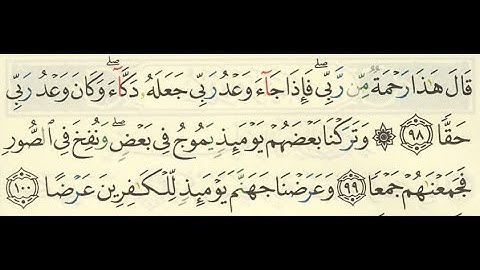 قَالَ هَٰذَا رَحْمَةٌ مِّن رَّبِّي ۖ فَإِذَا جَآءَ وَعْدُ رَبِّي جَعَلَهُۥ دَكَّآءَ ۖ وَكَانَ وَعْدُ رَبِّي
حَقًّا ﴿٩٨﴾ ۞ وَتَرَكْنَا بَعْضَهُمْ يَوْمَئِذٍ يَمُوجُ فِي بَعْضٍ ۖ وَنُفِخَ فِي الصُّورِ
فَجَمَعْنَٰهُمْ جَمْعًا ﴿٩٩﴾ وَعَرَضْنَا جَهَنَّمَ يَوْمَئِذٍ لِّلْكَٰفِرِينَ عَرْضًا ﴿١٠٠﴾